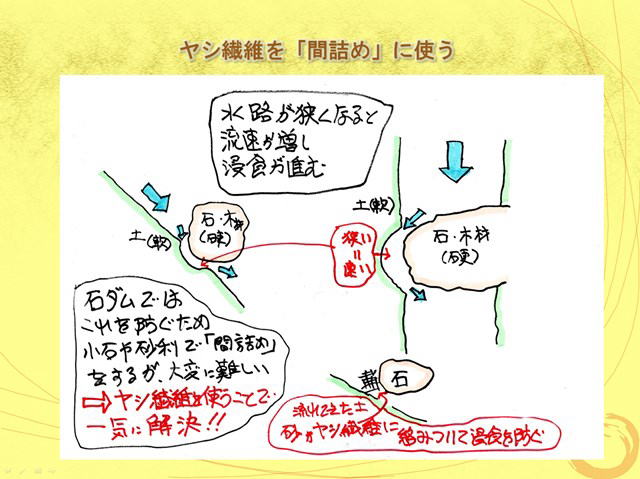 ヤシ繊維を「間詰め」に使う
水路が狭くなると
流速が増し
浸食が進む
土(軟)
石・木材
(硬)
狭い
=
速い
土(軟)
石・木材
(硬)
石ダムでは
これを防ぐため
小石や砂利で「間詰め」
をするが、大変に難しい
⇒ヤシ繊維を使うことで
一気に解決!!
石
流れてきた土
砂がヤシ繊維に
絡みついて浸食を防ぐ